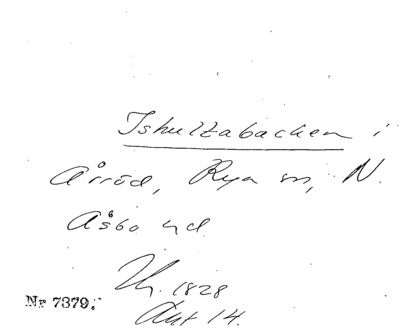 Ishultabacken i
Årröd, Rya sn, N.
Åsbo hd
1828
Akt 14.
Nr 7379.